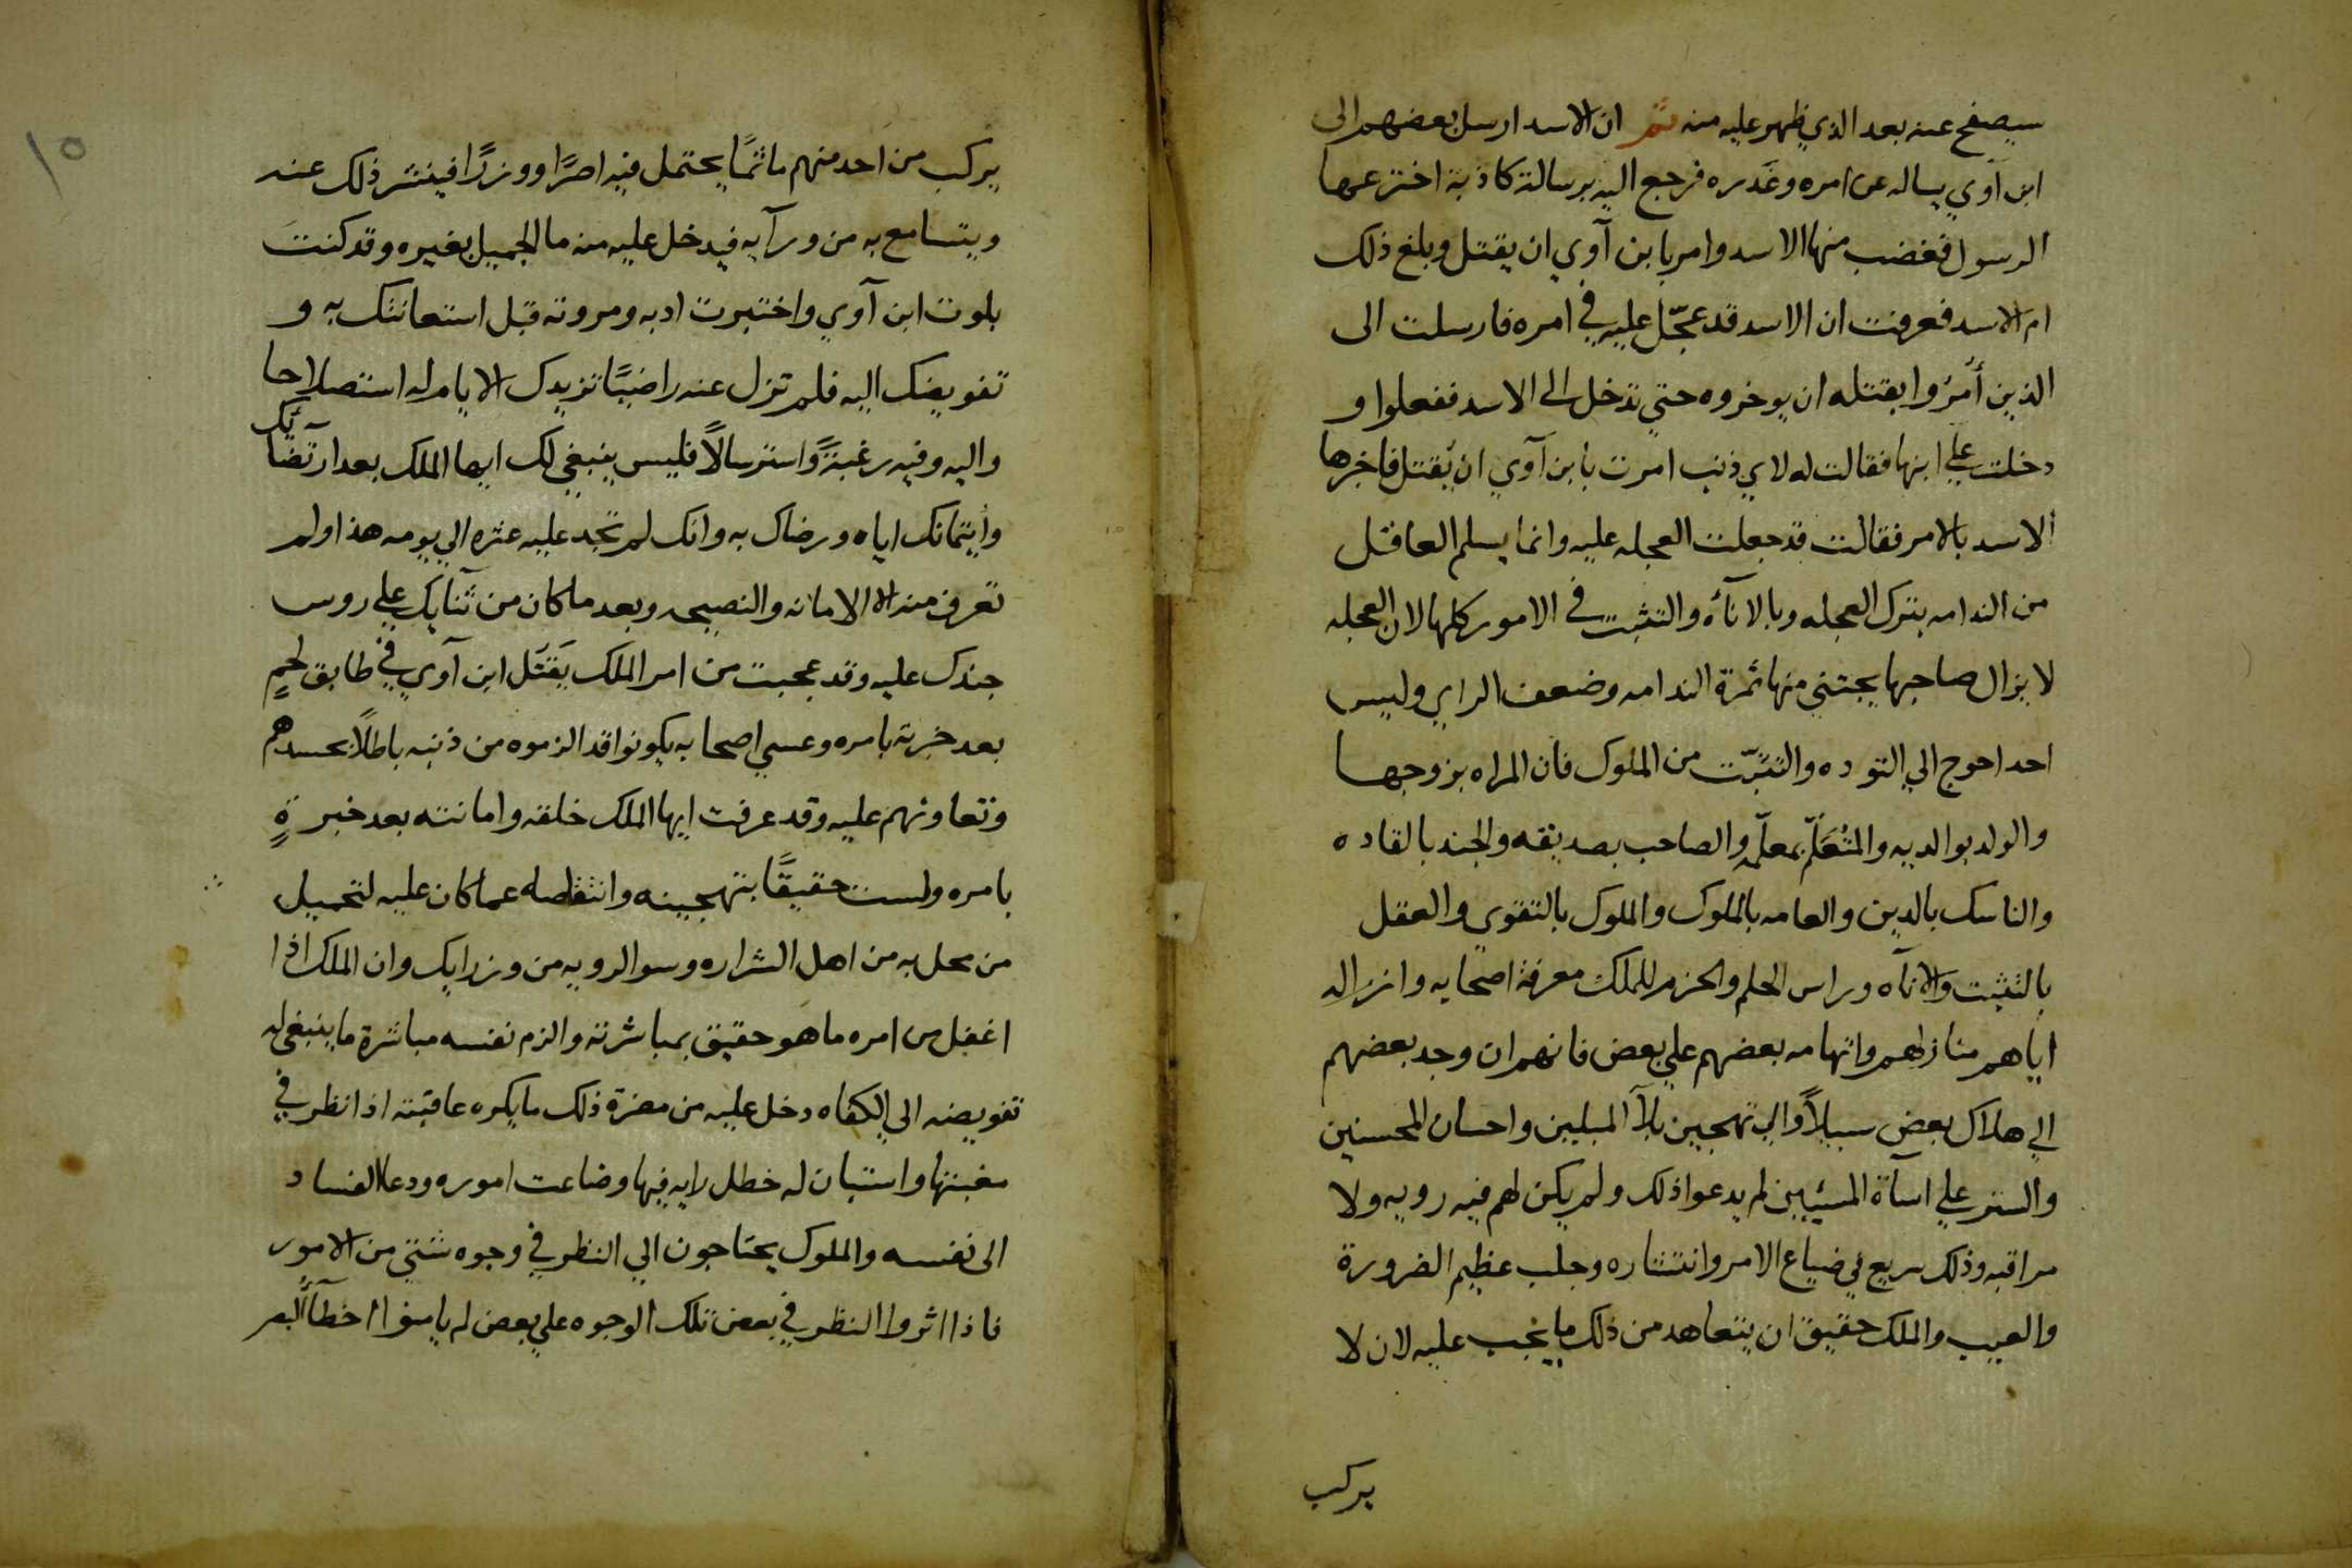 سيصفح عنه بعد الذي ظهر عليه منه ثم ان الاسد ارسل بعضهم الى
ابن آوي يساله عن امره وغدره فرجع اليه برسالة كاذبة اخترعها
الرسول فغضب منها الاسد وامر بابن آوي ان يقتل وبلغ ذلك
ام الاسد فعرفت ان الاسد قد عجّل عليه في امره فارسلت الى
الذين أمروا بقتله ان يوخروه حتي تدخل الى الاسد ففعلوا و
دخلت علي ابنها فقالت له لاي ذنب امرت بابن آوي ان يقتل فاخبرها
الاسد بالامر فقالت قد جعلت العجله عليه وانما يسلم العاقل
من الندامه بترك العجله وبالاناة والتثبت في الامور كلها لان العجله
لا يزال صاحبها يجتني منها ثمرة الندامه وضعف الراي وليس
احد احوج الي التوده والتثبّت من الملوك فان المراه بزوجها
والولد بوالديه والمتعلّم بمعلّمه والصاحب بصديقه والجند بالقاده
والناسك بالدين والعامه بالملوك والملوك بالتقوي والعقل
بالتثبت والاناه وراس الحلم والحزم للملك معرفة اصحابه وانزاله
اياهم منازلهم واتهامه بعضهم علي بعض فانهم ان وجد بعضهم
الي هلاك بعض سبيلاً والي تهجين بلآ المبلين واحسان المحسنين
والستر علي اسآة المسئين لم يدعوا ذلك ولم يكن لهم فيه رويه ولا
مراقبه وذلك سريع في ضياع الامر وانتشاره وجلب عظيم الضرورة
والعيب والملك حقيق ان يتعاهد من ذلك ما يجب عليه لان لا
يركب
١٥
يركب من احد منهم ماثمًا يحتمل فيه اصرًا ووزرًا فينشر ذلك عنه
ويتسامع به من ورآيه فيدخل عليه منه ما الجميل بغيره وقد كنت
بلوت ابن آوي واختبرت ادبه ومروته قبل استعانتك به و
تفويضك اليه فلم تزل عنه راضيًا تزيدك الايام له استصلاحا
واليه وفيه رغبةً واسترسالاً فليس ينبغي لك ايها الملك بعد ارتضآئك
وأيتمانك اياه ورضاك به وانك لم تجد عليه عثره الي يومه هذا ولم
تعرف منه الا الامانه والنصيحه وبعد ما كان من ثنايك علي روس
جندك عليه وقد عجبت من امر الملك بقتل ابن آوي في طابق لحمٍ
بعد خبرته بامره وعسي اصحابه يكونوا قد الزموه من ذنبه باطلاً بحسدهم
وتعاونهم عليه وقد عرفت ايها الملك خلقه وامانته بعد خبرةٍ
بامره ولست حقيقًا بتهجينه وانتقاصه عما كان عليه لتحميل
من محل به من اهل الشراره وسوالرويه من وزرايك وان الملك اذا
اغفل من امره ما هو حقيق بمباشرته والزم نفسه مباشرة ما ينبغي له
تفويضه الي الكفاه دخل عليه من مضرة ذلك ما يكره عاقبته اذا نظر في
مغبتها واستبان له خطل رايه فيها وضاعت اموره ودعا الفساد
الى نفسه والملوك يحتاجون الي النظر في وجوه شتي من الامور
فاذا اثروا النظر في بعض تلك الوجوه علي بعض لم يامنوا اخطآ البصر